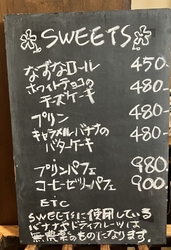 SWEETS
なずなロール 450-
ホワイトチョコの
チーズケーキ 480-
プリン 480-
キャラメルバナナの
バターケーキ 480-
プリンパフェ 980
コーヒーゼリーパフェ 900.
Etc
SWEETSに使用している
バナナやドライフルーツは
無農薬のものになります。